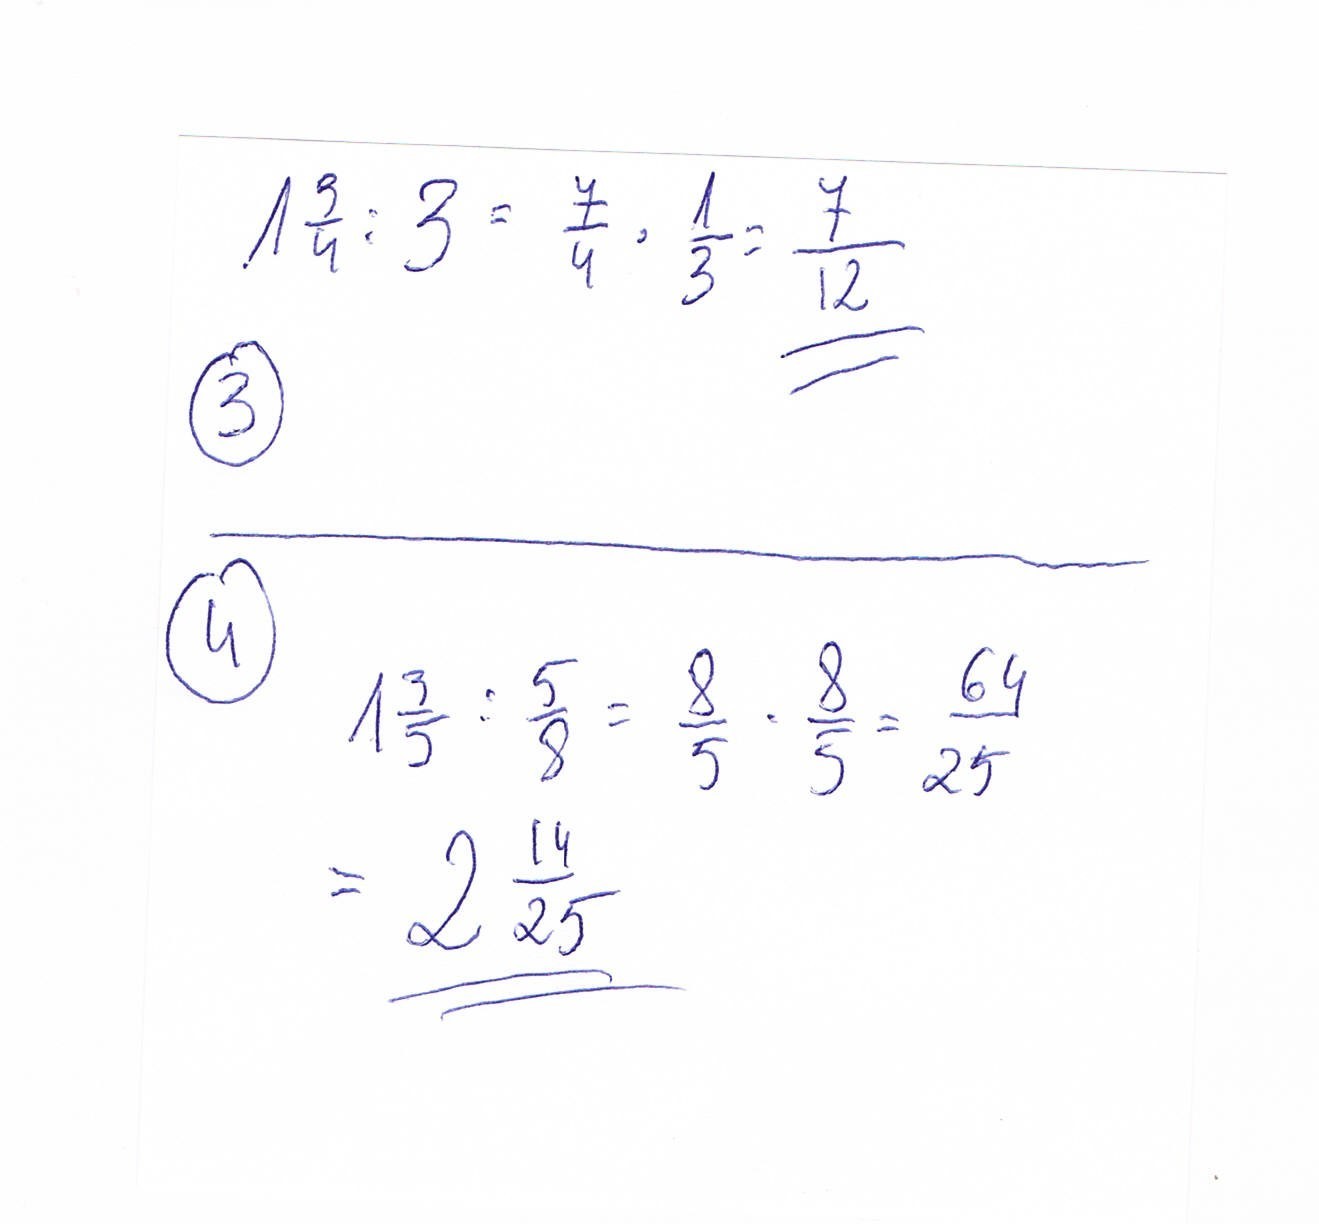 1 3/4 : 3 = 7/4 · 1/3 = 7/12
3
4
1 3/5 : 5/8 = 8/5 · 8/5 = 64/25
= 2 14/25